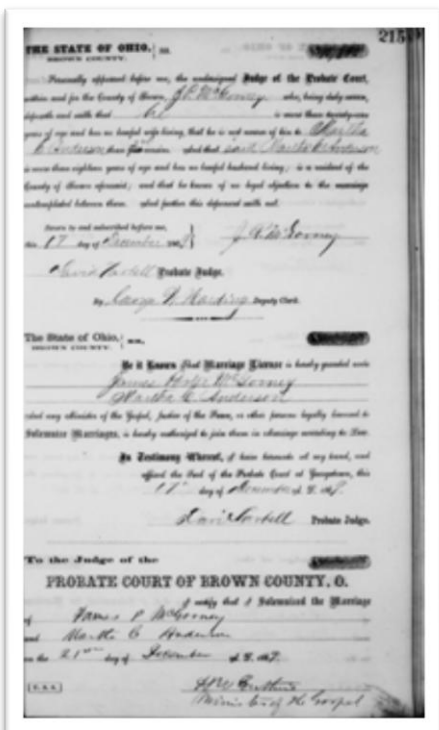 215
THE STATE OF OHIO, ss.
BROWN COUNTY.
Personally appeared before me, the undersigned Judge of the Probate Court,
within and for the County of Brown, J.P. McGorney who, being duly sworn,
deposeth and saith that he is more than twenty-one
years of age and has no lawful wife living, that he is not nearer of kin to Martha
C Anderson than cousin. And that said Martha C Anderson
is more than eighteen years of age and has no lawful husband living; is a resident of the
County of Brown aforesaid; and that he knows of no legal objection to the marriage
contemplated between them. And further this deponent saith not.
Sworn to and subscribed before me,
this 17 day of December
J. P. McGorney
David Tarbell Probate Judge.
By George W. Harding Deputy Clerk.
The State of Ohio, ss.
BROWN COUNTY.
Be it Known That Marriage License is hereby granted unto
James McGorney
Martha C Anderson
and any Minister of the Gospel, Justice of the Peace, or other person legally licensed to
Solemnize Marriages, is hereby authorized to join them in marriage according to Law.
In Testimony Whereof, I have hereunto set my hand, and
affixed the Seal of the Probate Court at Georgetown, this
17 day of December A. D.
David Tarbell Probate Judge.
To the Judge of the
PROBATE COURT OF BROWN COUNTY, O.
I certify that I Solemnized the Marriage
of James P McGorney
and Martha C Anderson
on the 21st day of December A. D.
Minister of the Gospel